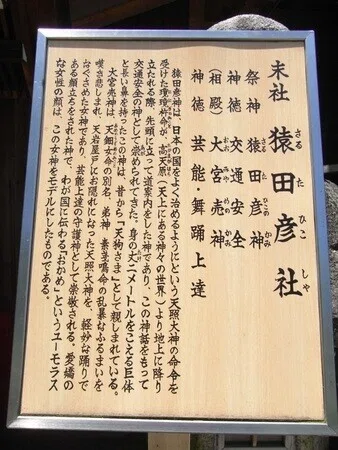 末社 猿田彦社
さるたひこしゃ
祭神 猿田彦神
さるたひこのかみ
神徳 交通安全
(相殿) 大宮売神
おおみやのめのかみ
神徳 芸能・舞踊上達
猿田彦神は、日本の国をよく治めるようにという天照大神の命令を
受けた瓊瓊杵命が、高天原(天上にある神々の世界)より地上に降り
立たれる際、先頭に立って道案内をした神であり、この神話をもって
交通安全の神として崇められてきた。身の丈二メートルをこえる巨体
と長い鼻を持ったこの神は、昔から「天狗さま」として親しまれている。
大宮売神は、天鈿女命の別名、弟神 素盞嗚命の乱暴なふるまいを
嘆き悲しまれ、天岩屋戸にお隠れになった天照大神を、軽妙な踊りで
なぐさめた女神であり、芸能上達の守護神として崇敬される。愛嬌の
ある顔立ちをされた神で、わが国に伝わる「おかめ」というユーモラス
な女性の顔は、この女神をモデルにしたものである。